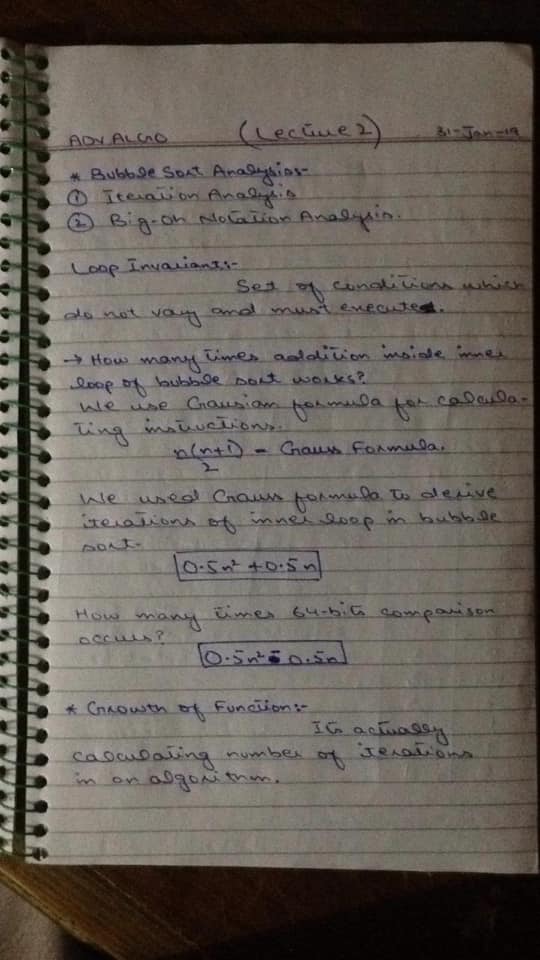 ADV ALGO (Lecture 2) 31-Jan-19
* Bubble Sort Analysis:-
① Iteration Analysis
② Big-Oh Notation Analysis.
Loop Invariant:-
Set of conditions which
do not vary and must execute.
→ How many times addition inside inner
loop of bubble sort works?
We use Gausian formula for calcula-
ting instructions.
n(n+1)/2 = Gauss Formula.
We used Gauss formula to derive
iterations of inner loop in bubble
sort.
0.5n² + 0.5n
How many times 64-bits comparison
occurs?
0.5n² - 0.5n
* Growth of Function:-
Its actually
calculating number of iterations
in an algorithm.